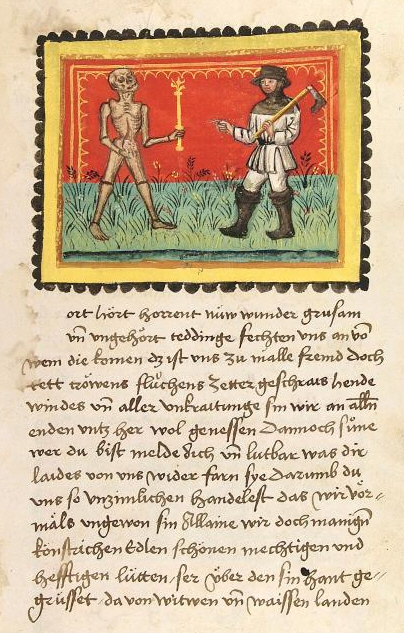 ort hört horrent nüw wunder grusam
vn̄ vngehört teddinge fechten vns an vō
wem die komen dz ist vns zu malle fremd doch
tett tröwens flůchens zetter geschrais hende
windes vn̄ allez ankraitunge sin wir an alln̄
enden vntz her wol genessen Dannoch süne
wer du bist melde dich vn̄ lutbar was dir
laides von vns wider farn sye Darumb du
vns so vnzimlichen handelest das wir vor=
mäls vngewon sin Allaine wir doch manign̄
künstrichen Edlen schönen mechtigen vnd
hefftigen lütten ser über den sin hant ge=
grüsset da von witwen vn̄ waissen landen